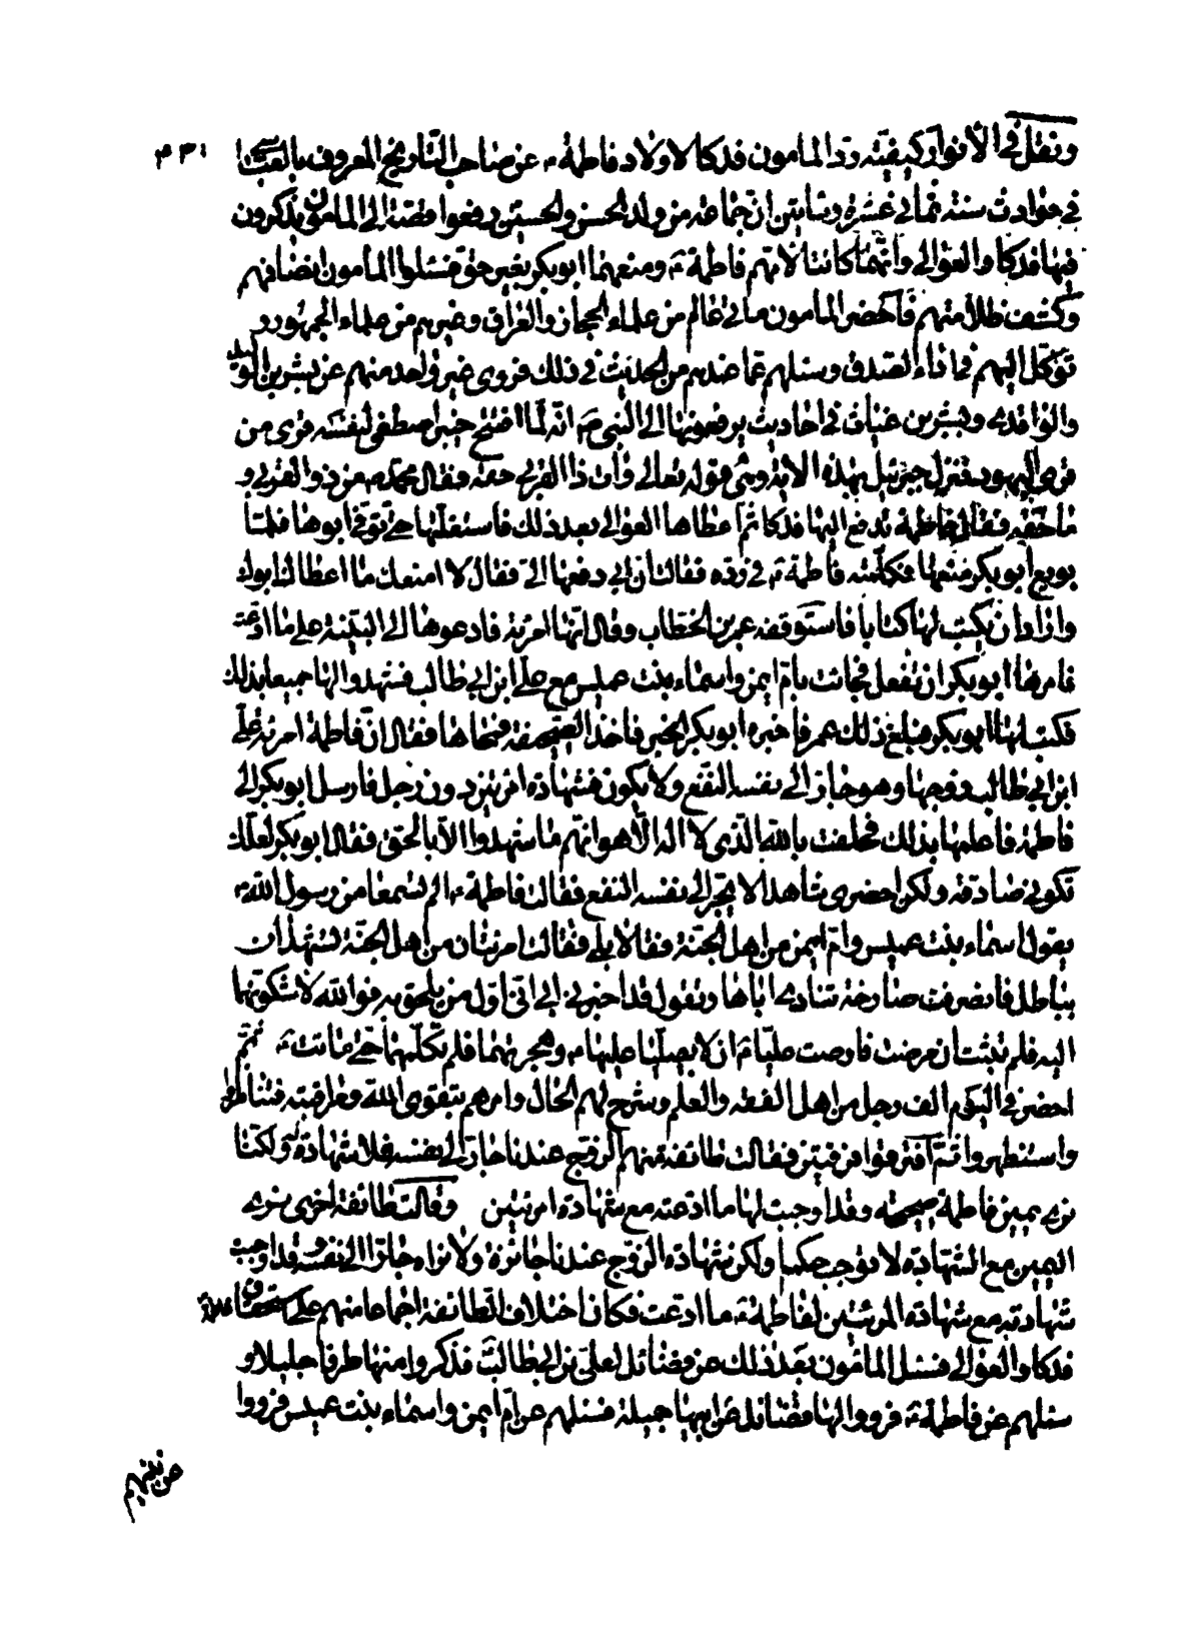 ونقل في الأنوار كيفيّته ردّ المامون فدكا لاولاد فاطمة ع عن صاحب التّاريخ المعروف بالعبّاسي ٤٣١
في حوادث سنة ثماني عشرة ومأتين انّ جماعة من ولد الحسن والحسين رفعوا قصّة الى المامون يذكرون
فيها فدكا والعوالي وانّهما كانتا لامّهم فاطمة ع ومنعهما ابو بكر بغير حق فسئلوا المأمون انصافهم
وكشف ظلامتهم فأحضر المامون مأتي عالم من علماء الحجاز والعراق وغيرهم من علماء الجمهور و
توكّل اليهم في اداء الصّدق وسئلهم عمّا عندهم من الحديث في ذلك فروى غير واحد منهم عن بشر بن الوليد
والواقدي وبشر بن غياث في احاديث يرفعونها الى النّبي ص انّه لمّا افتتح خيبر اصطفى لنفسه قرى من
قرى اليهود فنزل جبرئيل بهذه الاية وهي قوله تعالى وآت ذا القربى حقّه فقال محمّد ص من ذو القربى و
ما حقّه فقال فاطمة تدفع اليها فدكا ثمّ اعطاها العوالي بعد ذلك فاستغلّتها حتّى توفّي ابوها فلمّا
بويع ابو بكر منعها فكلّمته فاطمة ع في ردّه فقالت ان ابي دفعها اليّ فقال لا امنعك ما اعطاك ابوك
واراد ان يكتب لها كتابا فاستوقفه عمر بن الخطّاب وقال انّها امرئة فادعوها الى البيّنة على ما ادّعته
فامرها ابو بكر ان تفعل فجائت بامّ ايمن واسماء بنت عميس مع علي ابن ابي طالب فشهدوا لها جميعا بذلك
فكتب لها ابو بكر فبلغ ذلك عمر فاخبره ابو بكر الخبر فاخذ الصّحيفة فمحاها فقال انّ فاطمة امرئة عليّ
ابن ابي طالب زوجها وهو جارّ الى نفسه النّفع ولا يكون شهادة امرئتين دون رجل فارسل ابو بكر الى
فاطمة فاعلمها بذلك فحلفت باللّه الّذي لا اله الّا هو انّهم ما شهدوا الّا بالحقّ فقال ابو بكر لعلّك
تكوني صادقة ولكن احضري شاهدا لا يجرّ الى نفسه النفع فقالت فاطمة ع الم تسمعا من رسول اللّه ص
يقول اسماء بنت عميس وامّ ايمن من اهل الجنّة فقالا بلى فقالت امرئتان من اهل الجنّة تشهدان
بباطل فانصرفت صارخة تنادي اباها وتقول قد اخبرني ابي انّي اوّل من يلحق به فواللّه لأشكونّهما
اليه فلم تلبث ان مرضت فاوصت عليّا ع ان لا يصلّيا عليها ع وهجرتهما فلم تكلّمهما حتّى ماتت ع ثمّ
احضر في اليوم الف رجل من اهل الفقه والعلم وشرح لهم الحال وامرهم بتقوى اللّه ومراقبته فتناظروا
واستظهروا ثمّ افترقوا فرقتين فقالت طائفة منهم الزوج عندنا جارّ الى نفسه فلا شهادة له ولكنّا
نرى يمين فاطمة ع وقد اوجبت لها ما ادّعته مع شهادة امرئتين وقالت طائفة اخرى نرى
اليمين مع الشّهادة لا توجب حكما ولكن شهادة الزوج عندنا جائزة ولا نراه جارّا الى نفسه وقد اوجبت
شهادته مع شهادة المرئتين لفاطمة ع ما ادّعت فكان اختلاف الطّائفة اجماعا منهم على استحقاق فاطمة
فدكا والعوالي فسئل المأمون بعد ذلك عن فضائل لعلي بن ابي طالب فذكروا منها طرفا جليلا و
سئلهم عن فاطمة ع فرووا لها فضائل عن ابيها جميلة فسئلهم عن امّ ايمن واسماء بنت عميس فرووا
عن نبيّهم